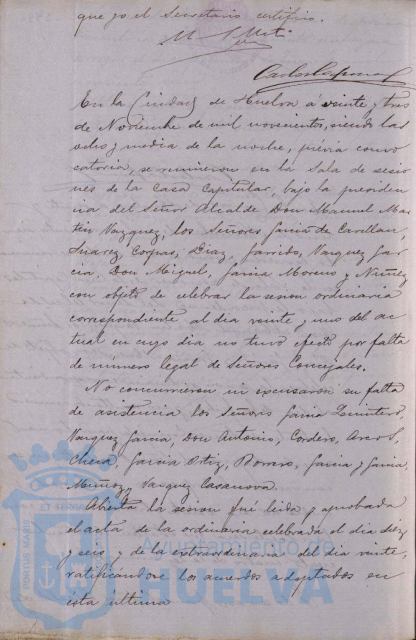 que yo el Secretario certifico.
En la Ciudad de Huelva á veinte y tres
de Noviembre de mil novecientos, siendo las
ocho y media de la noche, prévia convo
catoria, se reunieron en la Sala de sesio
nes de la Casa Capitular, bajo la presiden
cia del Señor Alcalde Don Manuel Mar
tin Vazquez, los Señores Garcia de Cevellan,
Suarez, Diaz, Garrido, Vazquez Gar
cia, Don Miguel, Garcia Moreno y Nuñez
con objeto de celebrar la sesion ordinaria
correspondiente al dia veinte y uno del ac
tual en cuyo dia no tuvo efecto por falta
de número legal de Señores Concejales.
No concurrieron ni excusaron su falta
de asistencia los Señores Garcia Quintero,
Vazquez Garcia, Don Antonio, Cordero,
Checa, Garcia Ortiz, Garcia y Garcia,
Muñoz y Vazquez Casanova.
Abierta la sesion fue leida y aprobada
el acta de la ordinaria celebrada el dia diez
y seis y de la extraordinaria del dia veinte,
ratificándose los acuerdos adoptados en
esta última
PORTUS MARIS
ET
Ayuntamiento de
HUELVA